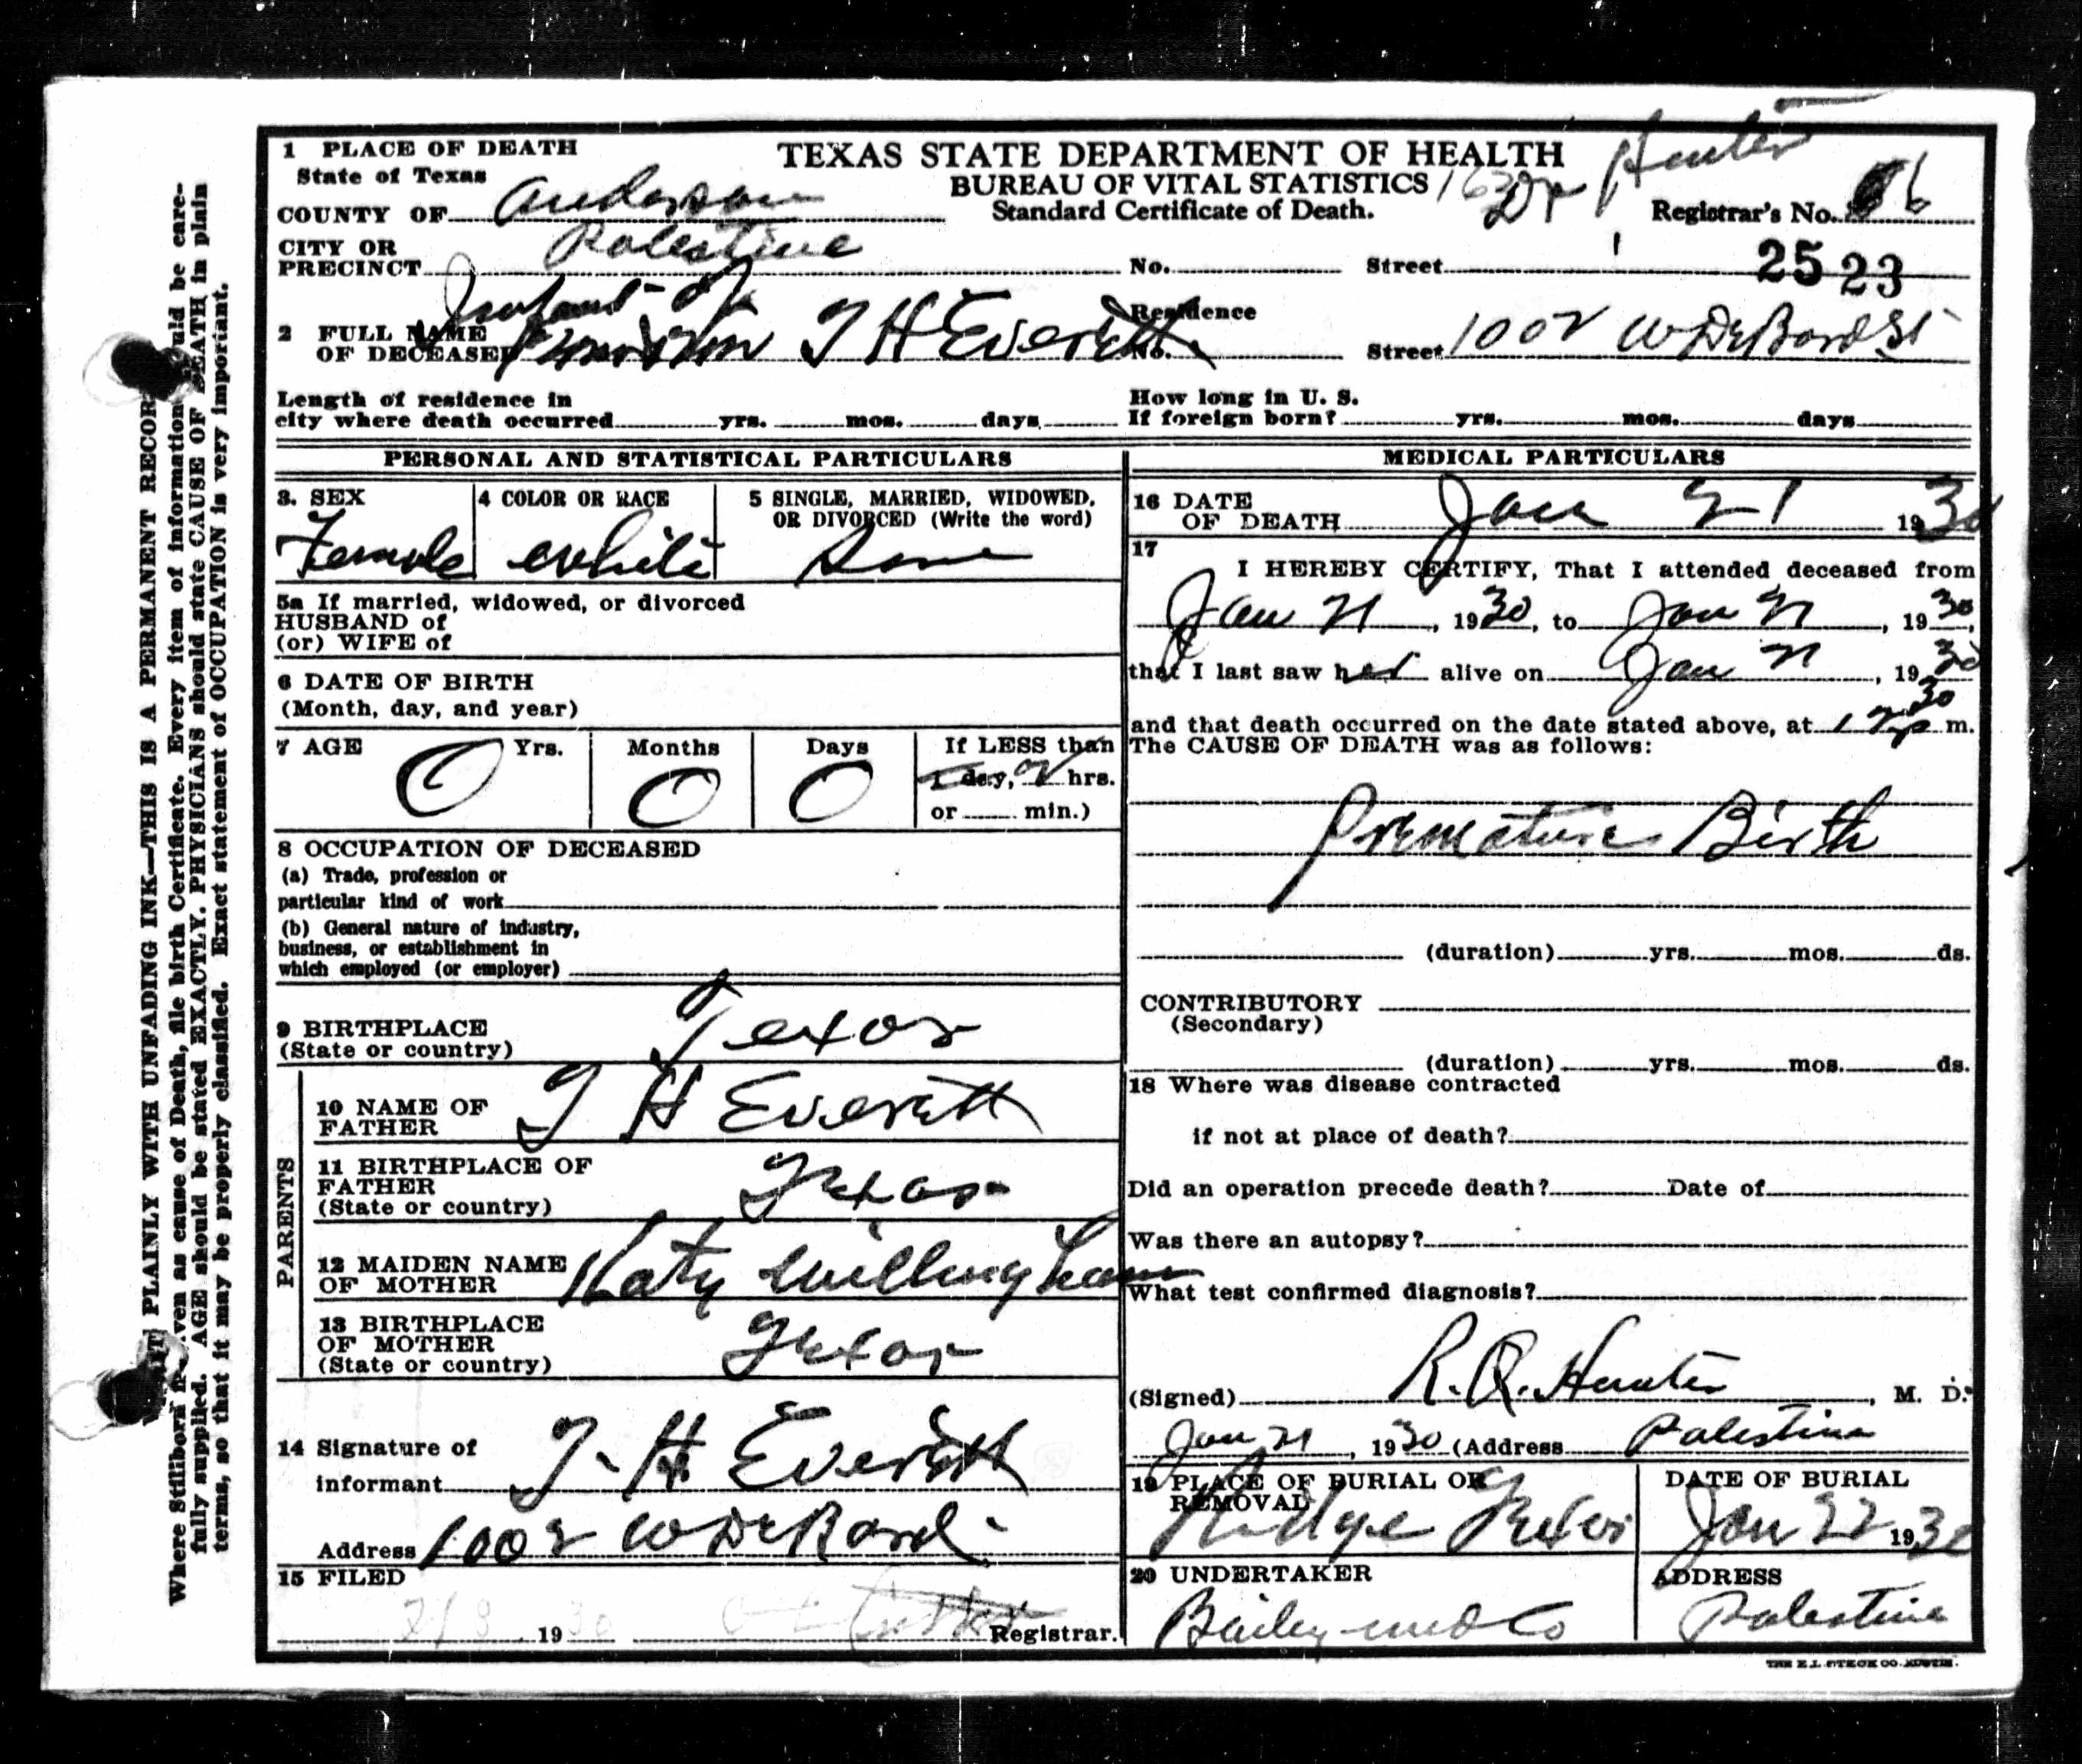 WRITE PLAINLY WITH UNFADING INK—THIS IS A PERMANENT RECORD
Where Stillborn is given as cause of Death, file birth Certificate. Every item of information should be care-
fully supplied. AGE should be stated EXACTLY. PHYSICIANS should state CAUSE OF DEATH in plain
terms, so that it may be properly classified. Exact statement of OCCUPATION is very important.
1 PLACE OF DEATH
State of Texas
COUNTY OF Anderson
CITY OR
PRECINCT Palestine
TEXAS STATE DEPARTMENT OF HEALTH
BUREAU OF VITAL STATISTICS
Standard Certificate of Death.
Dr Hunter
Registrar's No. 66
No. Street
25 23
2 FULL NAME
OF DECEASED Infant of T H Everett
Residence
No. Street 1002 W DeBard St
Length of residence in
city where death occurred yrs. mos. days
How long in U. S.
If foreign born? yrs. mos. days
PERSONAL AND STATISTICAL PARTICULARS
3. SEX
Female
4 COLOR OR RACE
white
5 SINGLE, MARRIED, WIDOWED,
OR DIVORCED (Write the word)
5a If married, widowed, or divorced
HUSBAND of
(or) WIFE of
6 DATE OF BIRTH
(Month, day, and year)
7 AGE 0 Yrs. 0 Months 0 Days
If LESS than
1 day, 2 hrs.
or min.)
8 OCCUPATION OF DECEASED
(a) Trade, profession or
particular kind of work
(b) General nature of industry,
business, or establishment in
which employed (or employer)
9 BIRTHPLACE
(State or country) Texas
PARENTS
10 NAME OF
FATHER T H Everett
11 BIRTHPLACE OF
FATHER
(State or country) Texas
12 MAIDEN NAME
OF MOTHER Katy Willingham
13 BIRTHPLACE
OF MOTHER
(State or country) Texas
14 Signature of
informant T. H Everett
Address 1002 W DeBard
15 FILED
2/3 1930 Registrar.
MEDICAL PARTICULARS
16 DATE
OF DEATH Jan 21 1930
17
I HEREBY CERTIFY, That I attended deceased from
Jan 21, 1930, to Jan 21, 1930,
that I last saw her alive on Jan 21, 1930
and that death occurred on the date stated above, at m.
The CAUSE OF DEATH was as follows:
Premature Birth
(duration) yrs. mos. ds.
CONTRIBUTORY
(Secondary)
(duration) yrs. mos. ds.
18 Where was disease contracted
if not at place of death?
Did an operation precede death? Date of
Was there an autopsy?
What test confirmed diagnosis?
(Signed) R. Q. Hunter, M. D.
Jan 21, 1930 (Address Palestine
19 PLACE OF BURIAL OR
REMOVAL
Texas
DATE OF BURIAL
Jan 22 1930
20 UNDERTAKER
Bailey und Co
ADDRESS
Palestine
THE E.L. STECK CO. AUSTIN.